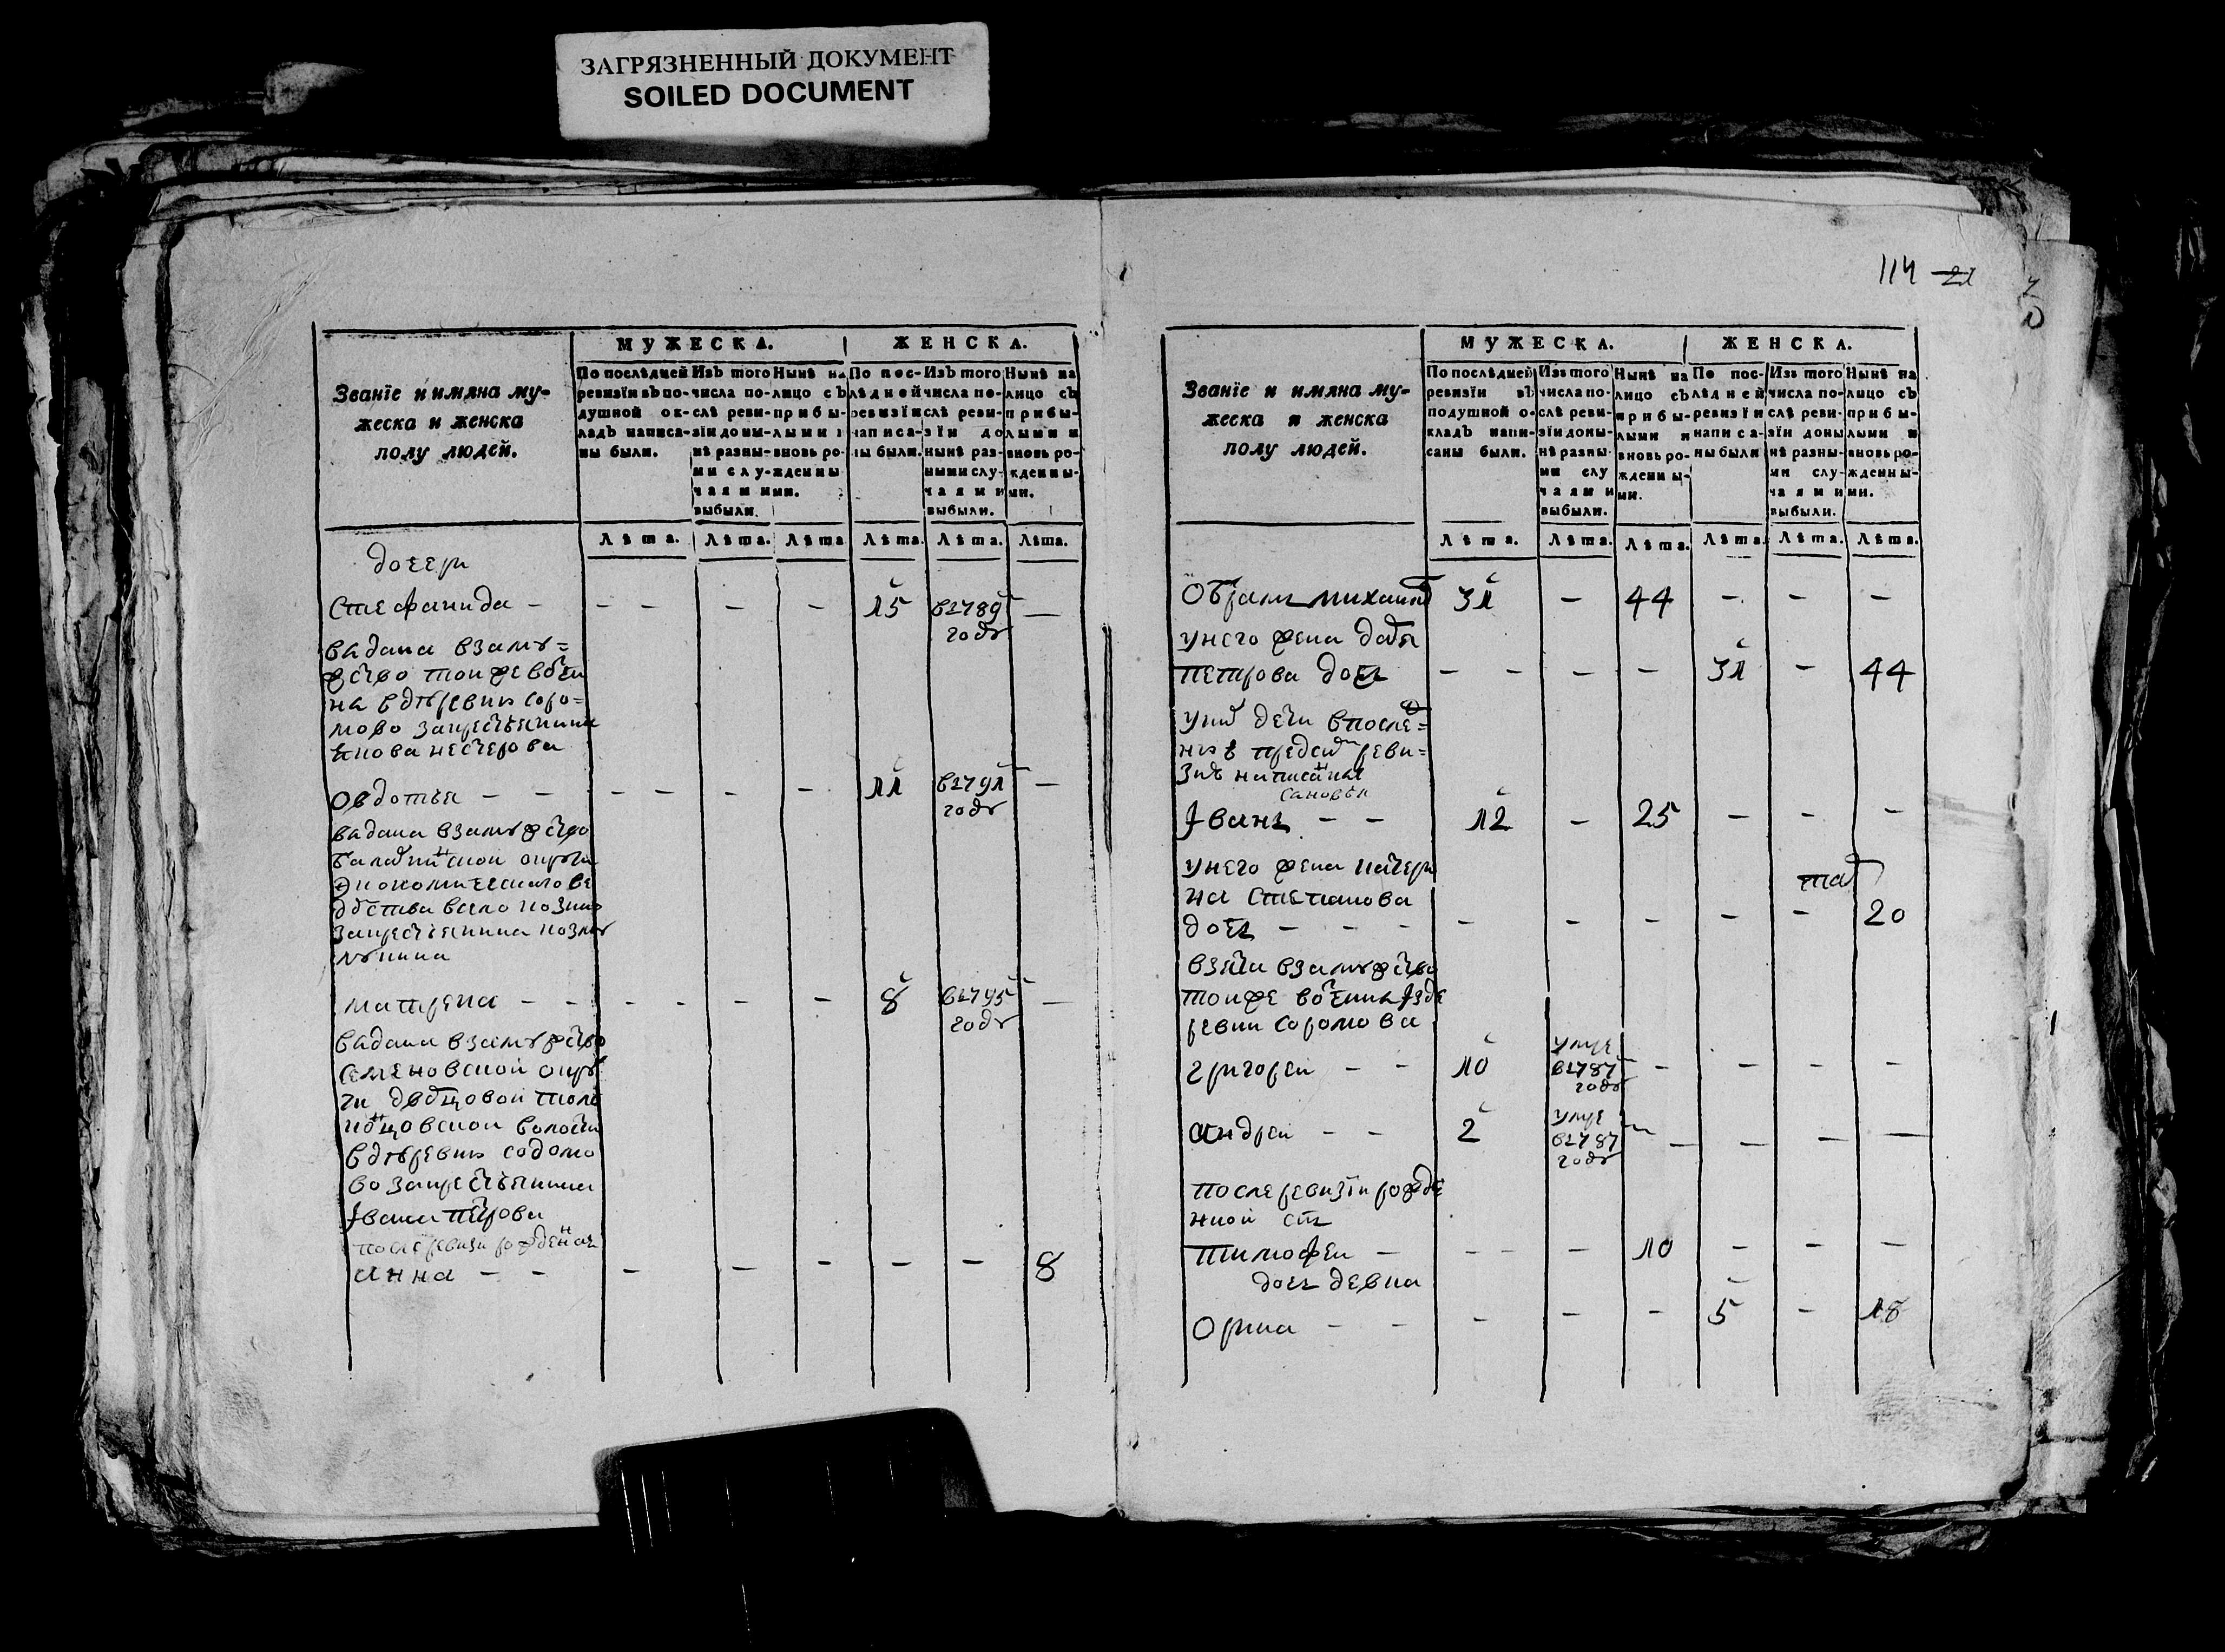 ЗАГРЯЗНЕННЫЙ ДОКУМЕНТ
SOILED DOCUMENT
Званїе и имяна му-
жеска и женска
полу людей.
МУЖЕСКА.
ЖЕНСКА.
По последней ревизїи въ по-душной ок-ладъ написа-ны были.
Изъ того числа по-слѣ реви-зїи доны-нѣ разны-ми слу-чаями выбыли.
Нынѣ на лицо съ прибы-лыми и вновь ро-жденны-ми.
По пос-лѣдней ревизїи написа-ны были.
Изъ того числа по-слѣ реви-зїи до нынѣ раз-ными слу-чаями выбыли.
Нынѣ на лицо съ прибы-лыми и вновь ро-жденны-ми.
Лѣта. Лѣта. Лѣта Лѣта. Лѣта. Лѣта.
дочери
Стефанида - - - - - 15 в1789 —
году
вадана взаму=
жство тойже вотчи
на вдѣревню соро=
мово закрестьянина
нестерова
Овдотья - - - - - - 11 в1791 —
году
вадана взамужство
округи
закрестьянина
матрена - - - - - - 8 в1795 —
году
вадана взамужство
семеновской окру
ги дворцовой
волости
вдѣревню содомо
во закрестьянина
Iвана петрова
после ревизи рожденая
анна - - - - - - - 8
114 21
Званїе и имяна му-
жеска и женска
полу людей.
МУЖЕСКА.
ЖЕНСКА.
По последней ревизїи въ подушной о-кладъ напи-саны были.
Изъ того числа по-слѣ реви-зїи доны-нѣ разны-ми слу чаями выбыли.
Нынѣ на лицо съ прибы-лыми и вновь ро-жденны-ми.
По пос-лѣдней ревизїи написа-ны были
Изъ того числа по-слѣ реви-зїи доны нѣ разны-ми слу-чаями выбыли.
Нынѣ на лицо съ прибы-лыми и вновь ро-жденны-ми.
Лѣта. Лѣта. Лѣта. Лѣта. Лѣта. Лѣта.
Обрам михаилов 31 - 44 - - -
унего жена
петрова дочь - - - - 31 - 44
уних дети впослед=
ней пред сим реви=
зиѣ написаныя
сановья
Iванъ - - 12 - 25 - - -
унего жена катери
на степанова
дочь - - - - - - - - - 20
взята взамужство
тойже вотчины Iзде
ревни соромова
григорей - - 10 умре - - - -
в1787
году
андреи - - 2 умре — — — —
в1787
году
после ревизїи рожде
нной сынъ
тимофеи - - - - 10 - - -
дочь девка
Орина - - - - - 5 - 18